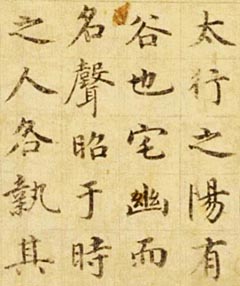 太行之陽有
谷也宅幽而
名聲昭于時
之人各執其